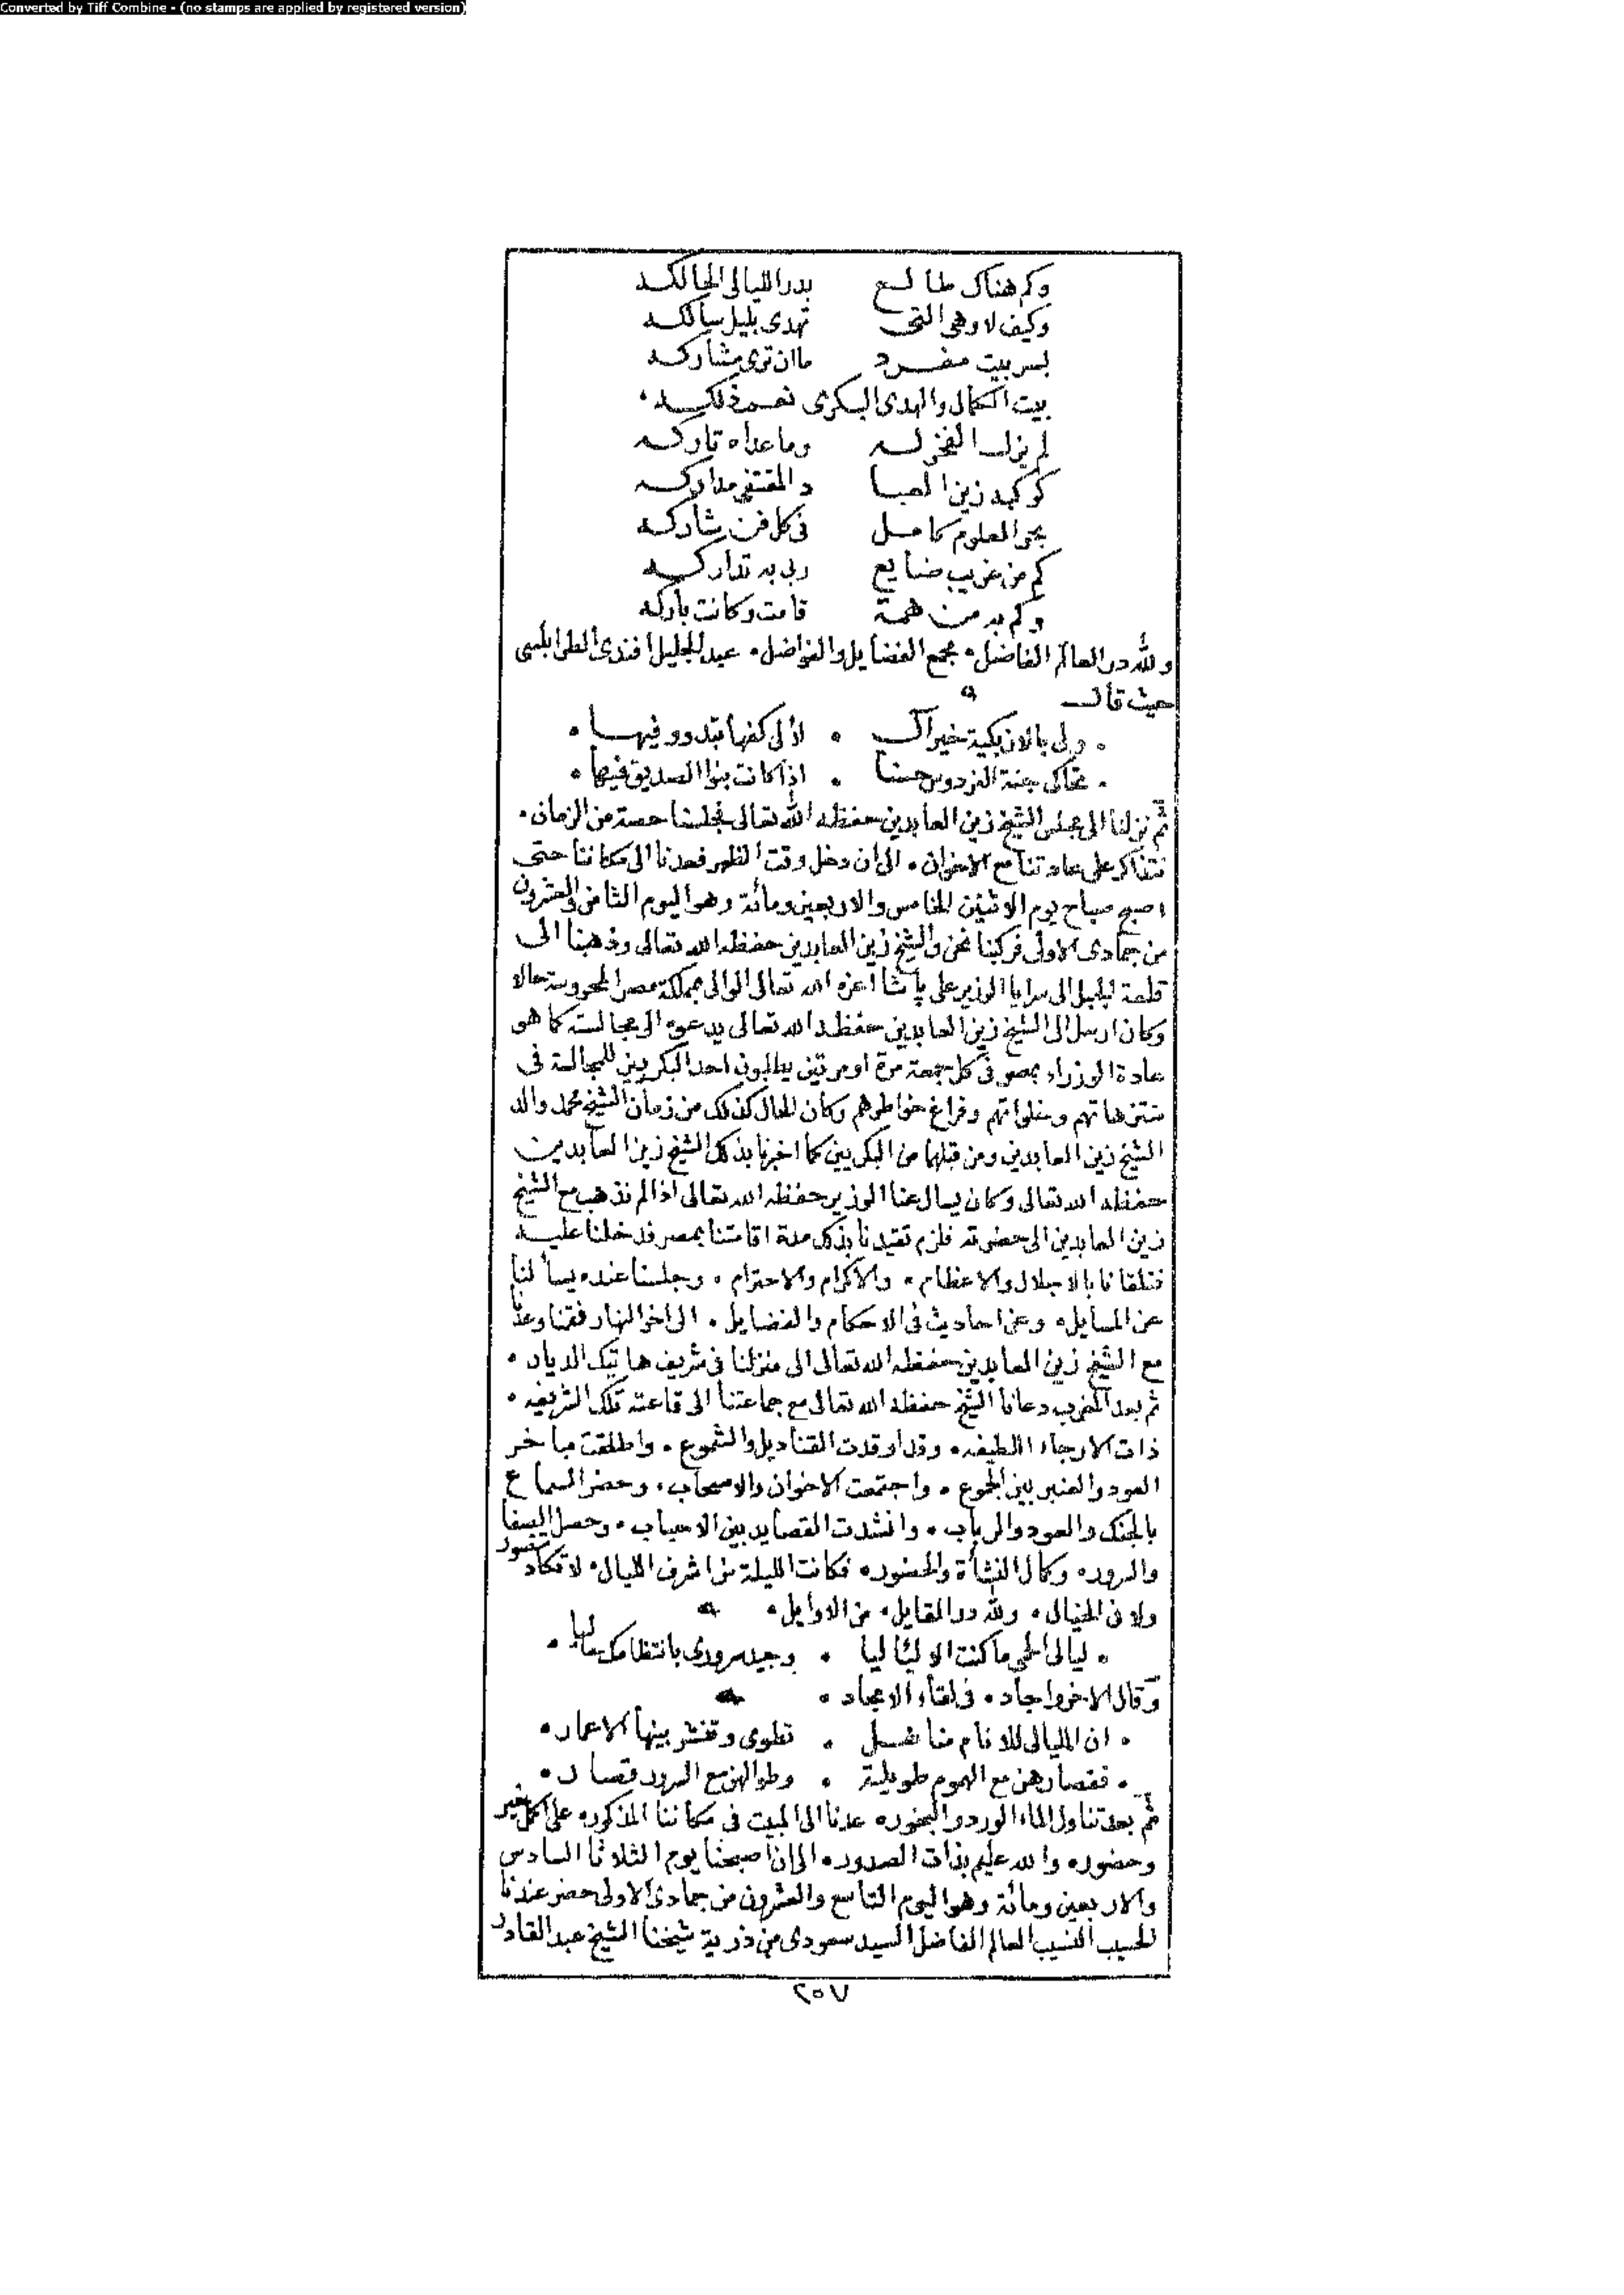 Converted by Tiff Combine - (no stamps are applied by registered version)
وكم هناك طالع بدر الليالى الحالكه
وكيف لا وهى التى تهدى بليل سالكه
بسر بيت مفرد ما ان ترى مشاركه
بيت الكمال والهدى البكرى نعم ذلكه
لم يزل الفخر له وما عداه تاركه
كوكبه زين العبا د المقتفى مداركه
بحر العلوم كامل فى كل فن شاركه
كم من غريب ضايع ربى به تداركه
وكم به من همة قامت وكانت باركه
ولله در العالم الفاضل٠ مجمع الفضايل والفواضل٠ عبد الجليل افندى الطرابلسى
حيث قال
٠ ولى بالازبكية خير آل ٠ اذلى كفها تبدو وفيها ٠
٠ تحاكى جنة الفردوس حسنا ٠ اذا كانت بنو الصديق فيها ٠
ثم نزلنا الى مجلس الشيخ زين العابدين حفظه الله تعالى فجلسنا حصة من الزمان٠
نتذاكر على عادتنا مع الاخوان٠ الى ان دخل وقت الظهر فعدنا الى مكاننا حتى
اصبح صباح يوم الاثنين الخامس والاربعين ومائة وهو اليوم الثامن والعشرون
من جمادى الاولى فركبنا نحن والشيخ زين العابدين حفظه الله تعالى وذهبنا الى
قلعة الجبل الى سرايا الوزير على پاشا اعزه الله تعالى الوالى بمملكة مصر المحروسة حالا
وكان ارسل الى الشيخ زين العابدين حفظه الله تعالى يدعوه الى مجالسته كما هو
عادة الوزراء بمصر فى كل جمعة مرة او مرتين يطلبون احد البكريين للمجالسة فى
منتزهاتهم وخلواتهم وفراغ خواطرهم وكان الحال كذلك من زمان الشيخ محمد والد
الشيخ زين العابدين ومن قبلهما من البكريين كما اخبرنا بذلك الشيخ زين العابدين
حفظه الله تعالى وكان يسال عنا الوزير حفظه الله تعالى اذا لم نذهب مع الشيخ
زين العابدين الى حضرته فلزم تقيدنا بذلك مدة اقامتنا بمصر فدخلنا عليه
فتلقانا بالاجلال والاعظام٠ والاكرام والاحترام ٠ وجلسنا عنده يسألنا
عن المسايل٠ وعن احاديث فى الاحكام والفضايل ٠ الى اخر النهار فقمنا وعدنا
مع الشيخ زين العابدين حفظه الله تعالى الى منزلنا فى شريف هاتيك الديار ٠
ثم بعد المغرب دعانا الشيخ حفظه الله تعالى مع جماعتنا الى قاعته تلك الشريفه ٠
ذات الارجاء اللطيفه٠ وقد اوقدت القناديل والشموع ٠ واطلقت مباخر
العود والعنبر بين الجموع ٠ واجتمعت الاخوان والاصحاب٠ وحضر السماع
بالجنك والعود والرباب ٠ وانشدت القصايد بين الاحباب ٠ وحصل الصفا
والسرور٠ وكمال النشأة والحضور٠ فكانت الليلة من اشرف الليال٠ لا تكاد تتصور
ولا فى الخيال٠ ولله در القايل٠ من الاوايل٠
٠ ليالى الحمى ما كنت الا لئاليا ٠ وجيد سرورى بانتظامك حاليا ٠
وقال الاخر واجاد٠ فى لقاء الامجاد ٠
٠ ان الليالى للانام مناهل ٠ تطوى وتنشر بينها الاعمار٠
٠ فقصارهن مع الهموم طويلة ٠ وطوالهن مع السرور قصار ٠
ثم بعد تناول الماء الورد والبخور٠ عدنا الى المبيت فى مكاننا المذكور٠ على اكمل خير
وحضور٠ والله عليم بذات الصدور٠ الى ان اصبحنا يوم الثلاثا السادس
والاربعين ومائة وهو اليوم التاسع والعشرون من جمادى الاولى حضر عندنا
الحسيب النسيب العالم الفاضل السيد سعودى من ذرية شيخنا الشيخ عبد القادر
٢٥٧